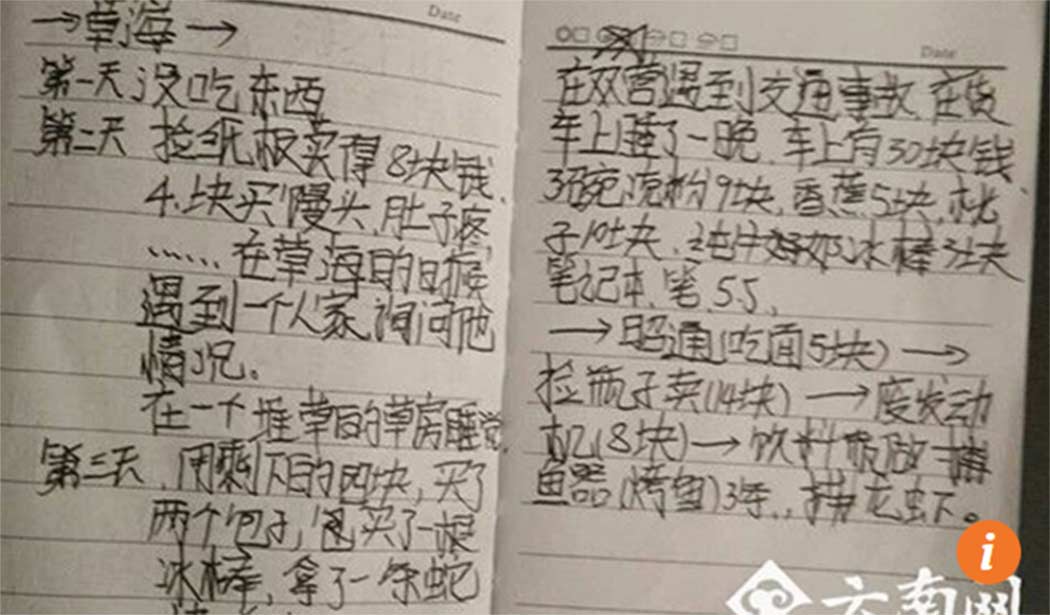 Date
→草海→
第一天 没吃东西
第二天 捡纸板卖得8块钱.
4.块买馒头,肚子疼
……在草海目的时候
遇到一个人家,询问他
情况。
在一个堆草的草房睡觉.
第三天,用剩下的四块,买了
两个包子,包买了一根
冰棒,拿了一条蛇
Date
在双营遇到交通事故,在货
车上睡了一晚.车上有30块钱.
3碗凉粉9块,香蕉5块,桃
子10块,纯牛奶 冰棒3块
笔记本,笔,5.5、
→昭通(吃面5块)→
捡瓶子卖(14块)→废发动
机(8块)→饮料瓶做捕
鱼器(烤鱼)3条,,龙虾。
i
云南网